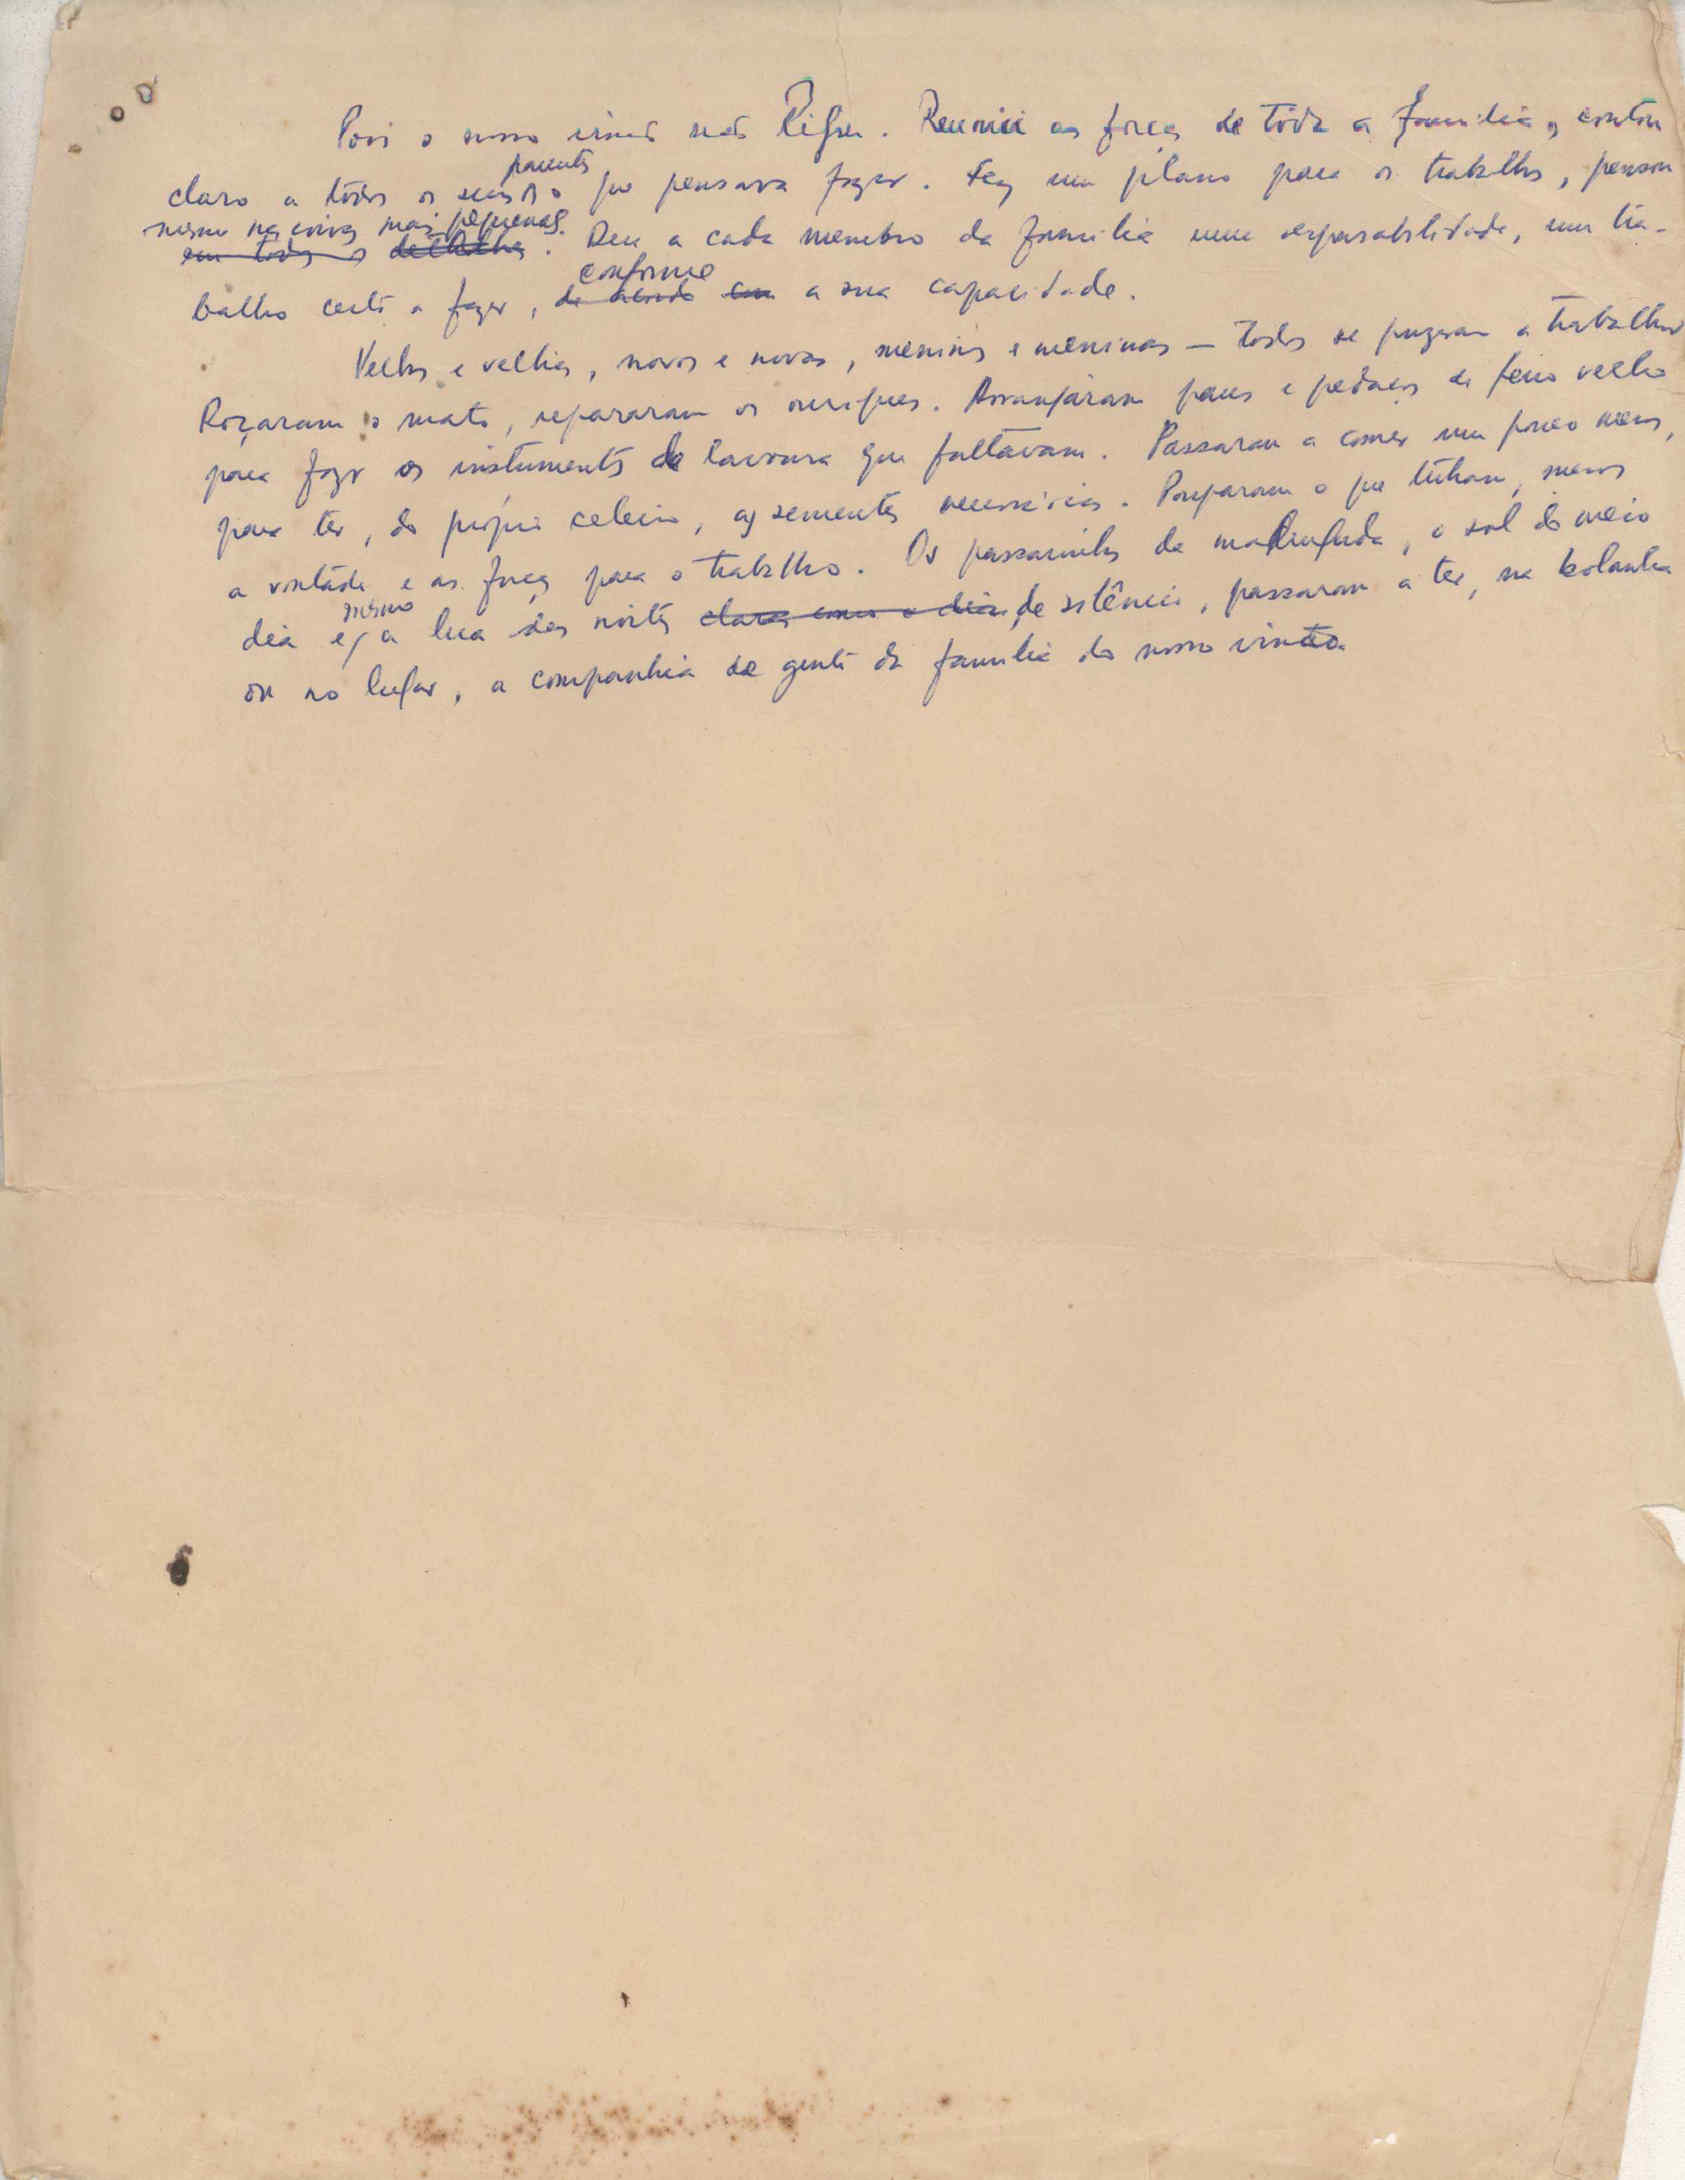 Pois o nosso irmão não ligou. Reuniu as forças de tôda a família, contou
claro a todos os seus parentes o que pensava fazer. Fez um plano para os trabalhos, pensou
mesmo nas coisas mais pequenas.
em todos os detalhes. Deu a cada membro da família uma responsabilidade, um tra-
balho certo a fazer, de acordo com conforme a sua capacidade.
Velhos e velhas, novos e novas, meninos e meninas — todos se puzeram a trabalhar
Roçaram o mato, repararam os ouriques. Arranjáram paus e pedaços de ferro velho
para fazer os instrumentos de lavoura que faltavam. Passaram a comer um pouco menos,
para ter, do próprio celeiro, as sementes necessárias. Pouparam o que tinham, menos
a vontade e as forças para o trabalho. Os passarinhos da madrugada, o sol do meio
dia e mesmo a lua das noites claras como o dia, de silêncio, passaram a ter, na bolanha
ou no lugar, a companhia de gente da família do nosso irmão.